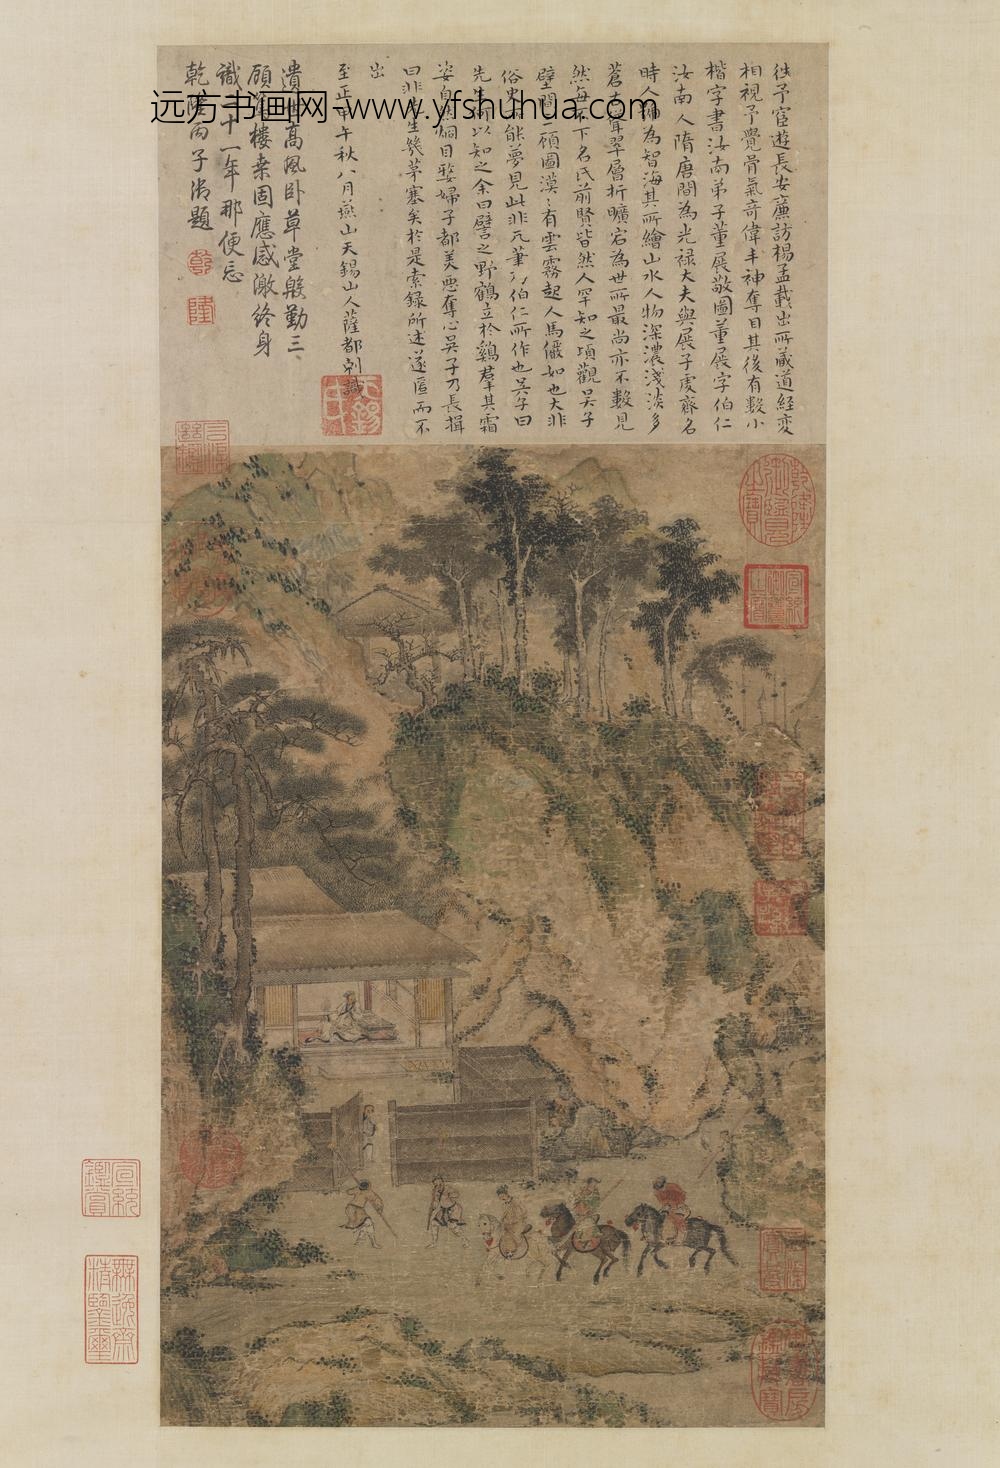 往予宦遊長安廉訪楊孟載出所藏道經變
相視予覺骨氣奇偉丰神奪目其後有數小
楷字書汝南弟子董展敬圖董展字伯仁
汝南人隋唐間為光禄大夫與展子虔齊名
時人稱為智海其所繪山水人物深濃淺淡多
蒼古聳翠層折曠宕為世所最尚亦不數見
然每不下名氏前賢皆然人罕知之頃觀吴子
壁間三顧圖漠漠有雲霧起人馬儼如也大非
俗史能夢見此非凡筆乃伯仁所作也吴子曰
先生何以知之余曰譬之野鶴立於鷄羣其霜
姿自與炯目嫛婦子都美惡奪心吴子乃長揖
曰非先生幾茅塞矣於是索録所述遂匿而不
出
至正甲午秋八月燕山天錫山人薩都剌識
遺世高風卧草堂殷勤三
顧 樓桑固應感激終身
識二十一年那便忘
乾隆丙子御題
乾
隆
乾隆御覽之寶
宣統御覽之寶
三希堂精鑑璽
宣統鑑賞
無逸齋精鑒璽
远方书画网-www.yfshuhua.com